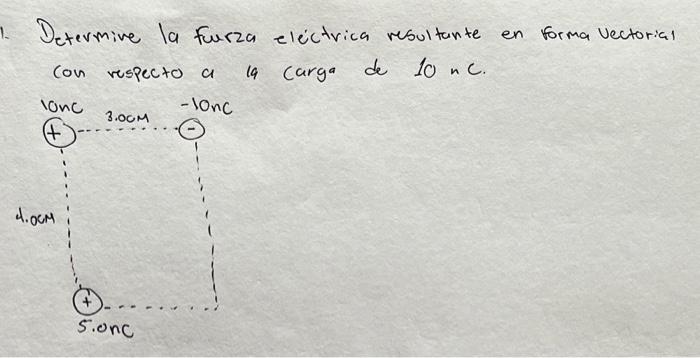 1. Determine la fuerza eléctrica resultante en forma Vectorial
Con respecto a la carga de 10 nC.
10nC 3.0cM -10nC
+ -
4.0cM
+
5.0nC